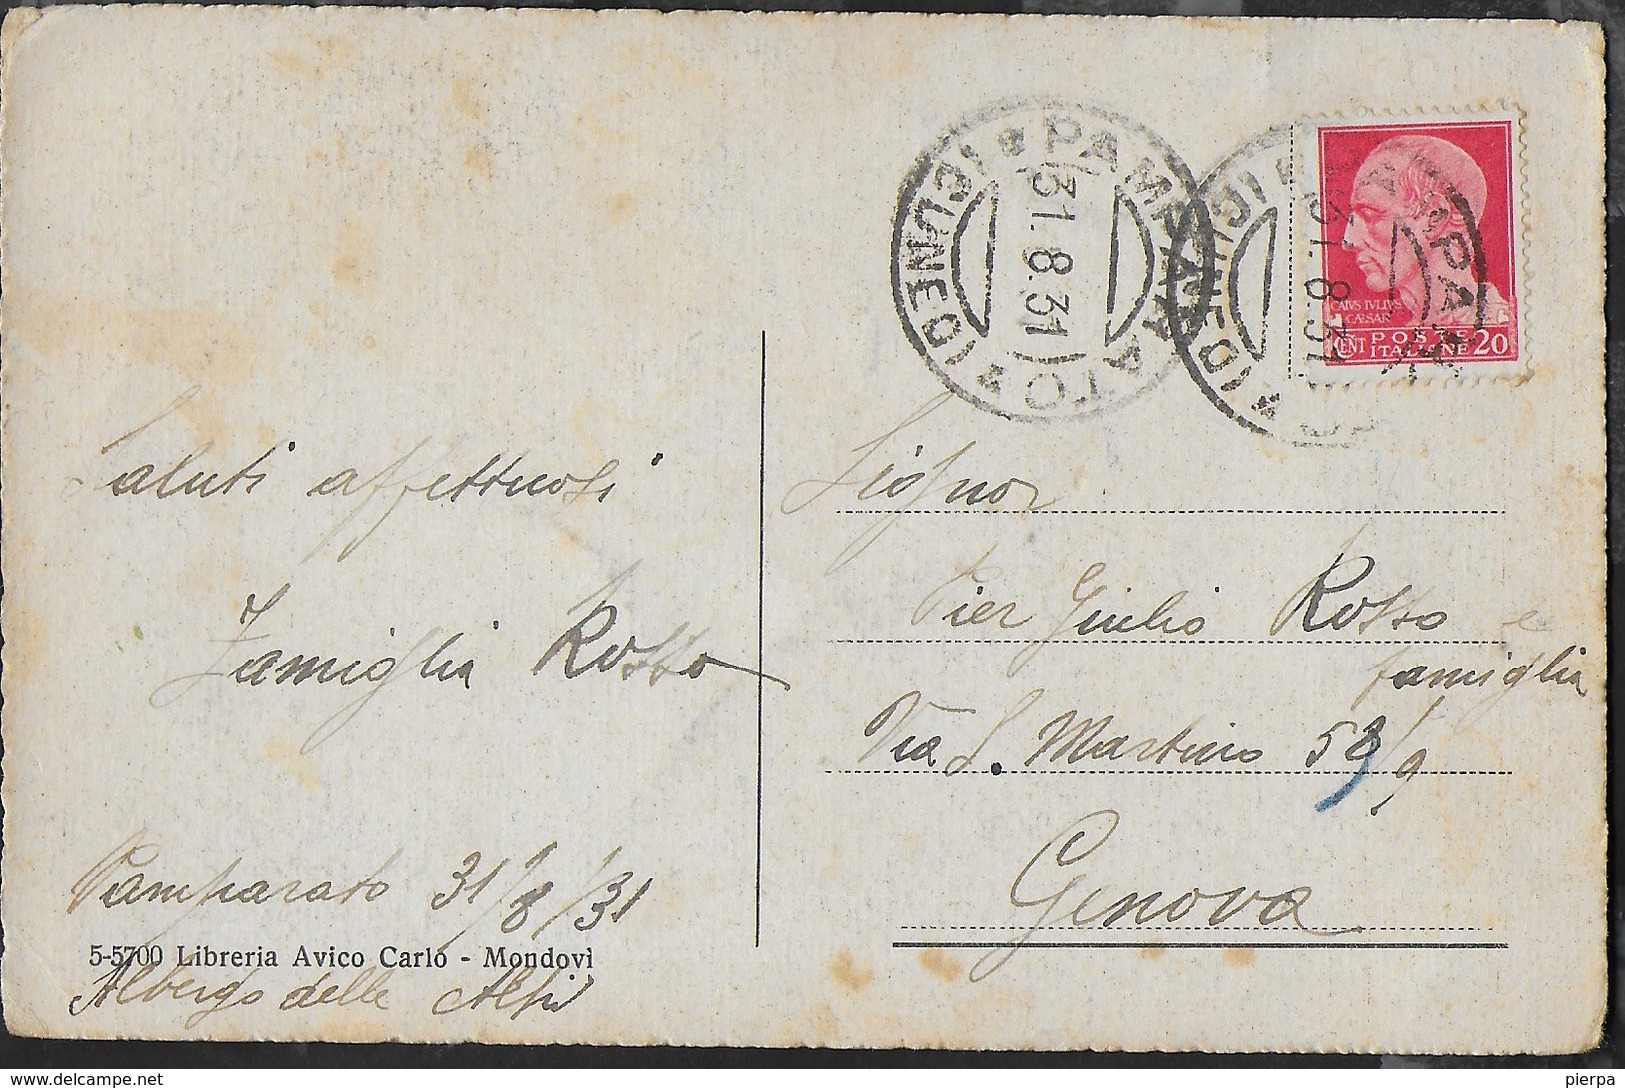 Saluti affettuosi
Famiglia Rosso
Pamparato 31/8/31
5-5700 Libreria Avico Carlo - Mondovì
Albergo delle Alpi
PAMPARATO
(CUNEO)
31.8.31
CAIVS IVLIVS
CAESAR
CENT POSTE
ITALIANE 20
Signor
Pier Giulio Rosso e
famiglia
Via S. Martino 58/9
Genova
delcampe.net
pierpa